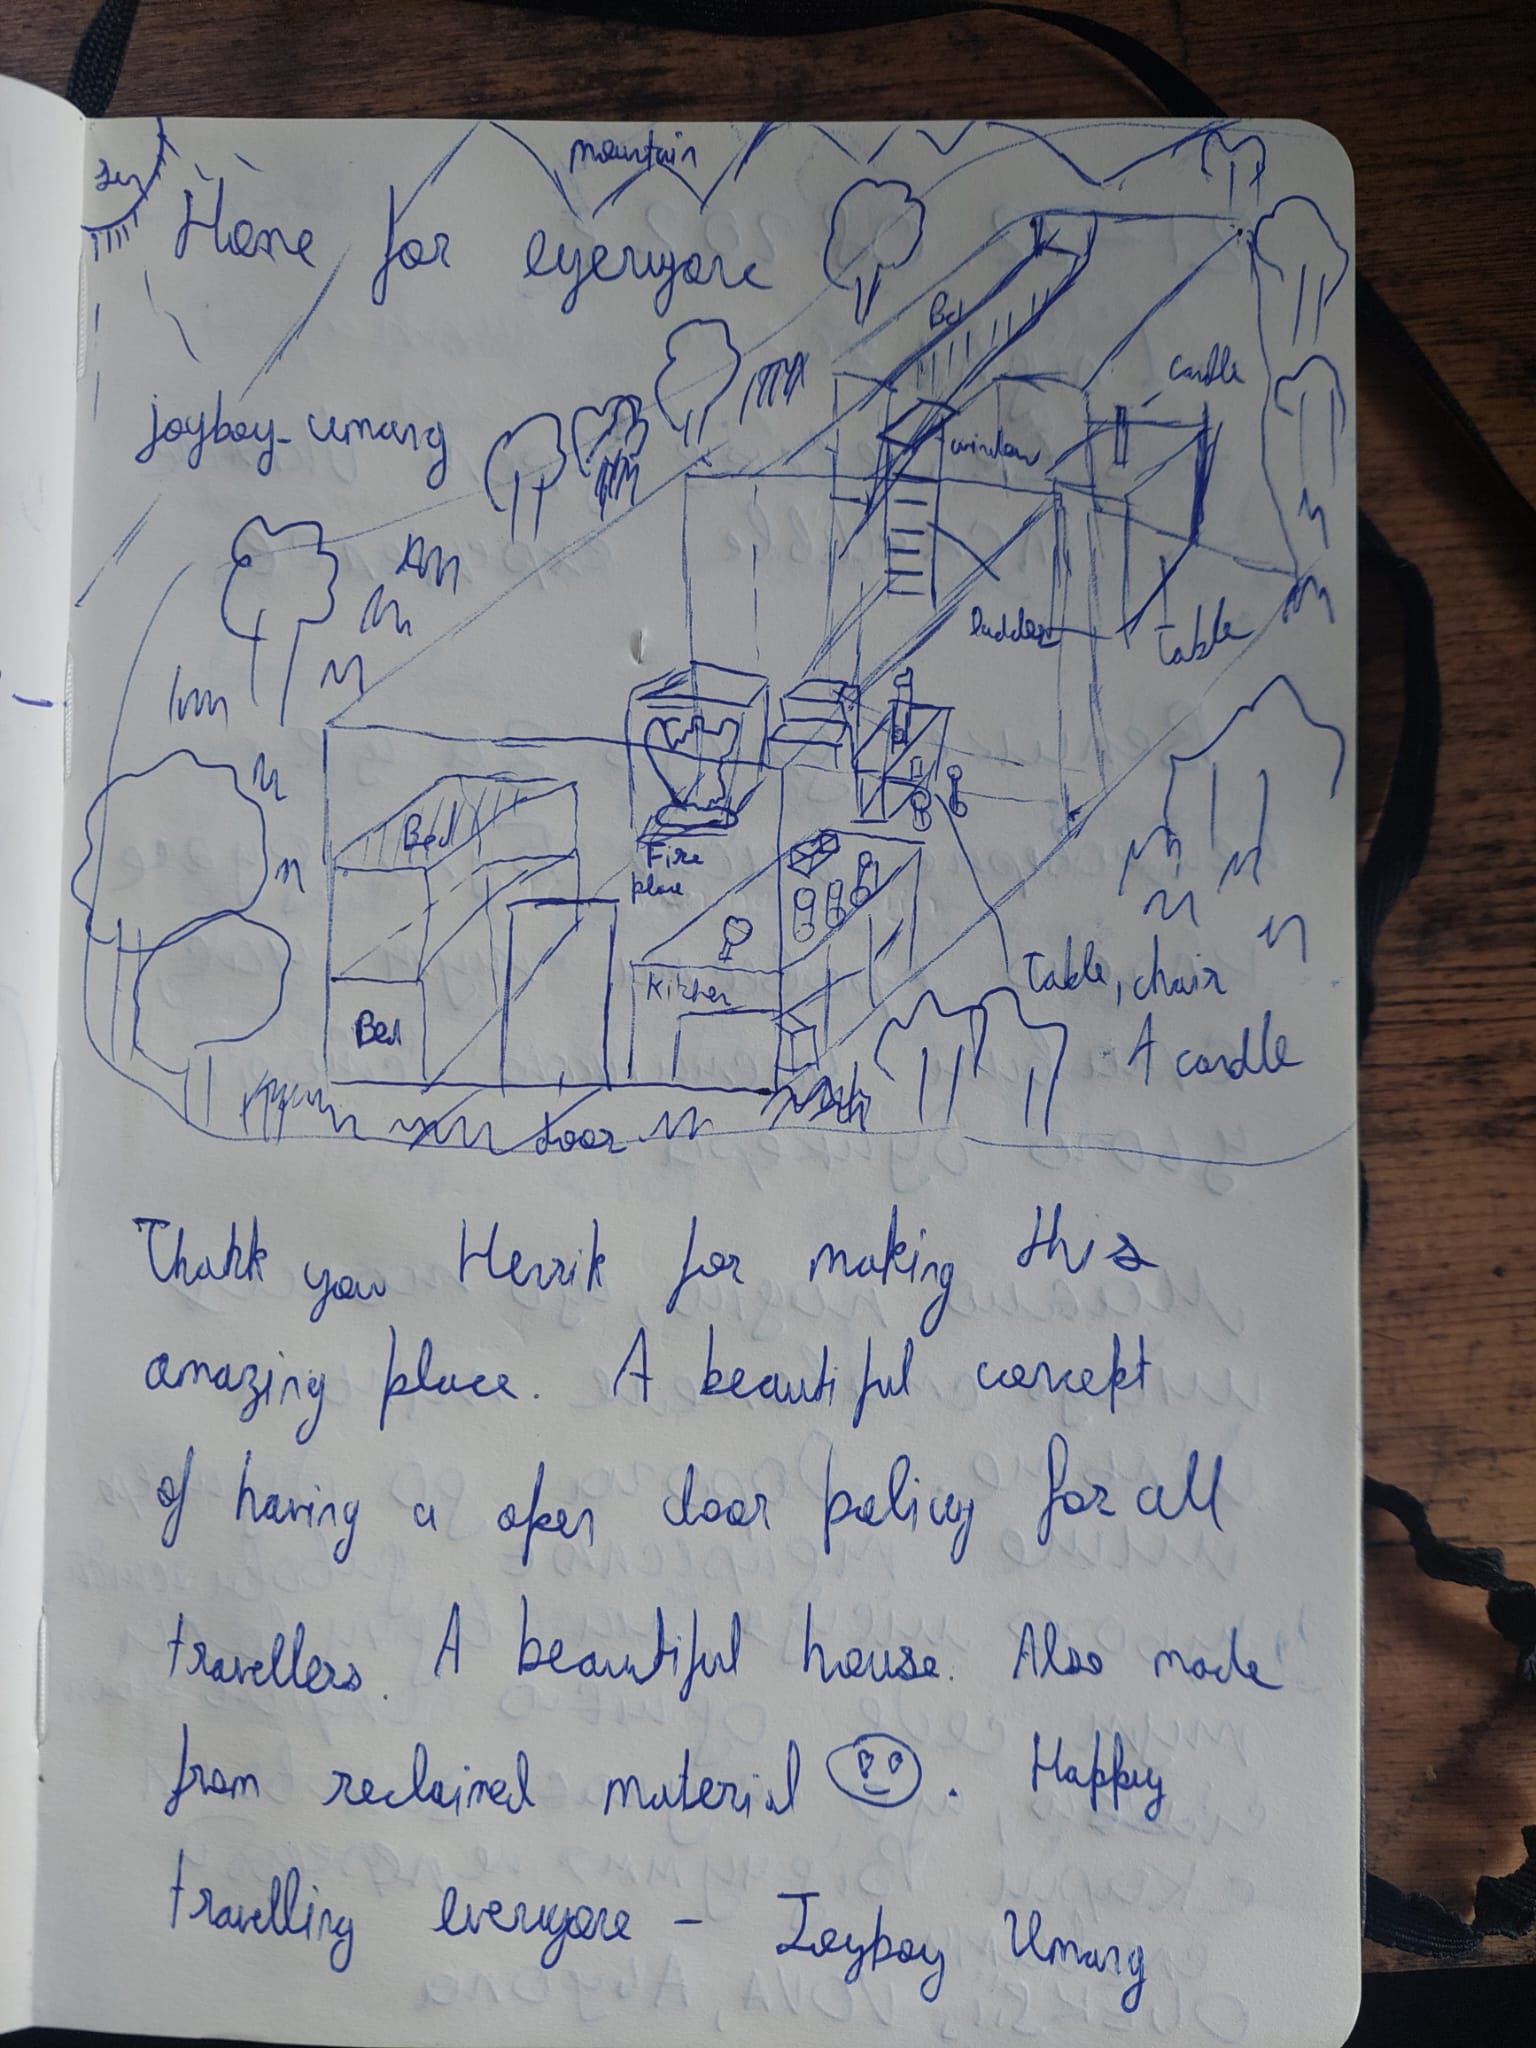 sun
mountain
Home for everyone
Bed
candle
joyboy_umang
window
ladder
table
Bed
Fire
place
Kitchen
Table, chair
A candle
Bed
door
Thank you Henrik for making this
amazing place. A beautiful concept
of having a open door policy for all
travellers. A beautiful house. Also made
from reclaimed material. Happy
travelling everyone - Joyboy Umang